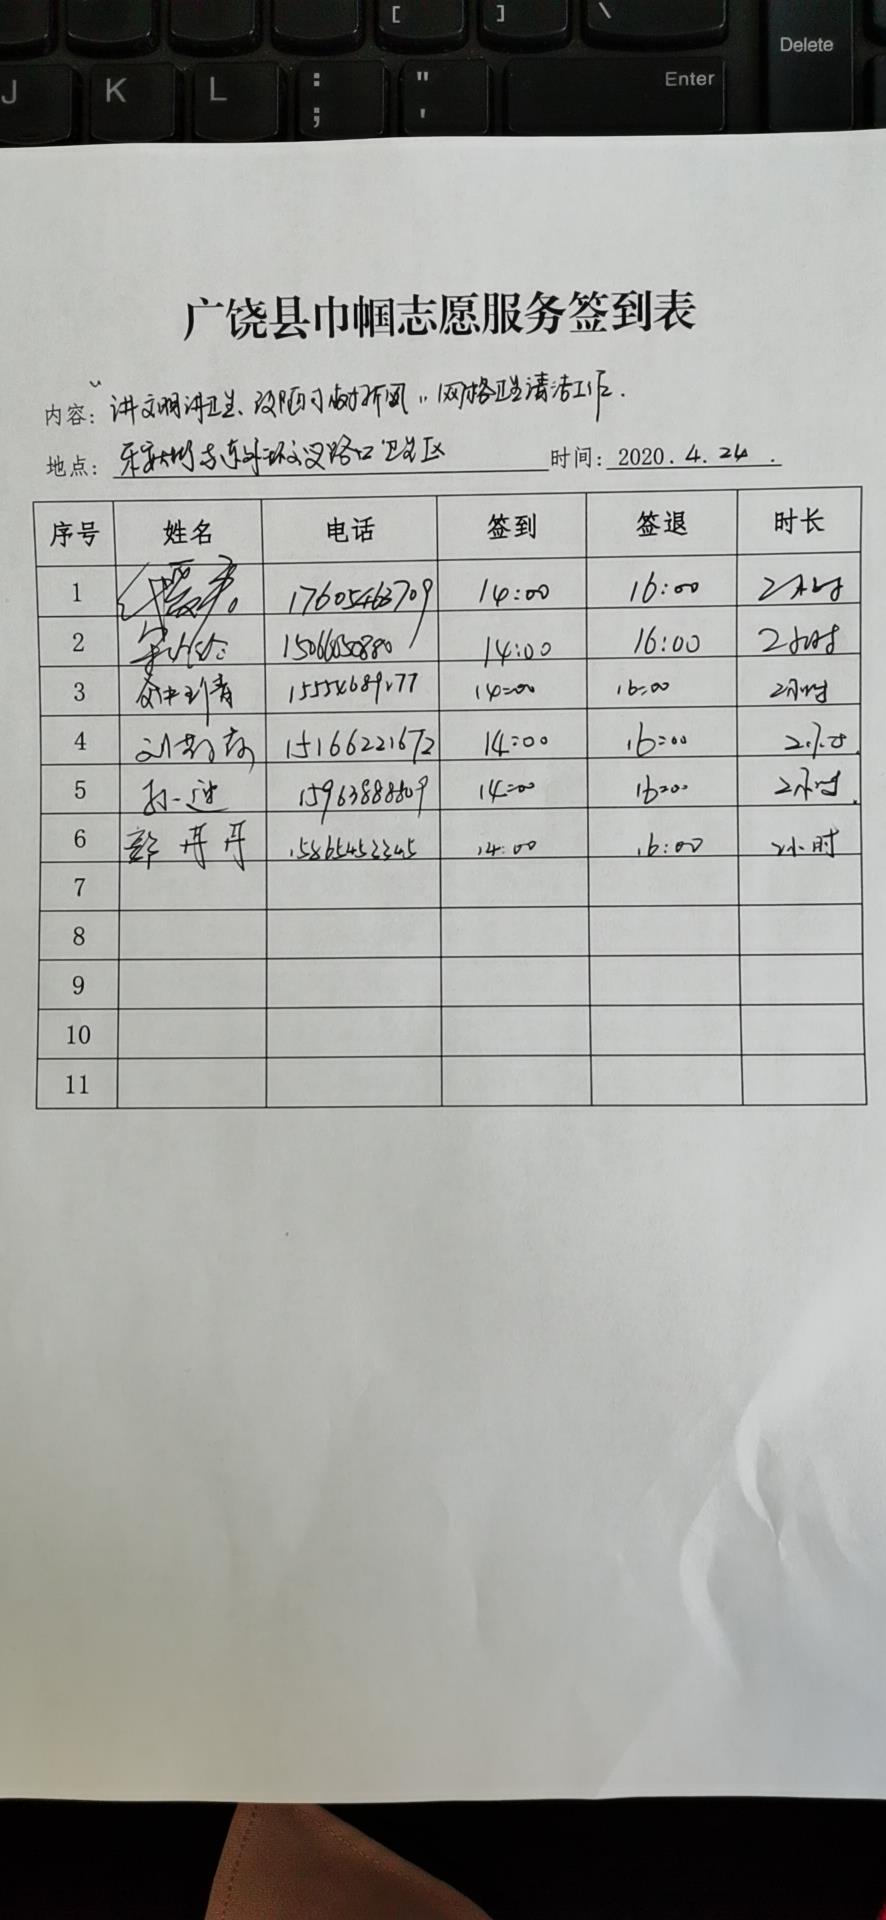 [ ] \ Delete
J K L : ; " ' Enter
广饶县巾帼志愿服务签到表
内容: 讲文明讲卫生、改陋习树新风",网格卫生清洁工作.
地点: 路口卫生区 时间: 2020.4.24.
序号 姓名 电话 签到 签退 时长
1 17605463709 14:00 16:00 2小时
2 14:00 16:00 2小时
3 14:00 16:00 2小时
4 15166221672 14:00 16:00 2小时
5 孙一迪 15963888809 14:00 16:00 2小时
6 郭丹丹 15865452345 14:00 16:00 2小时
7
8
9
10
11